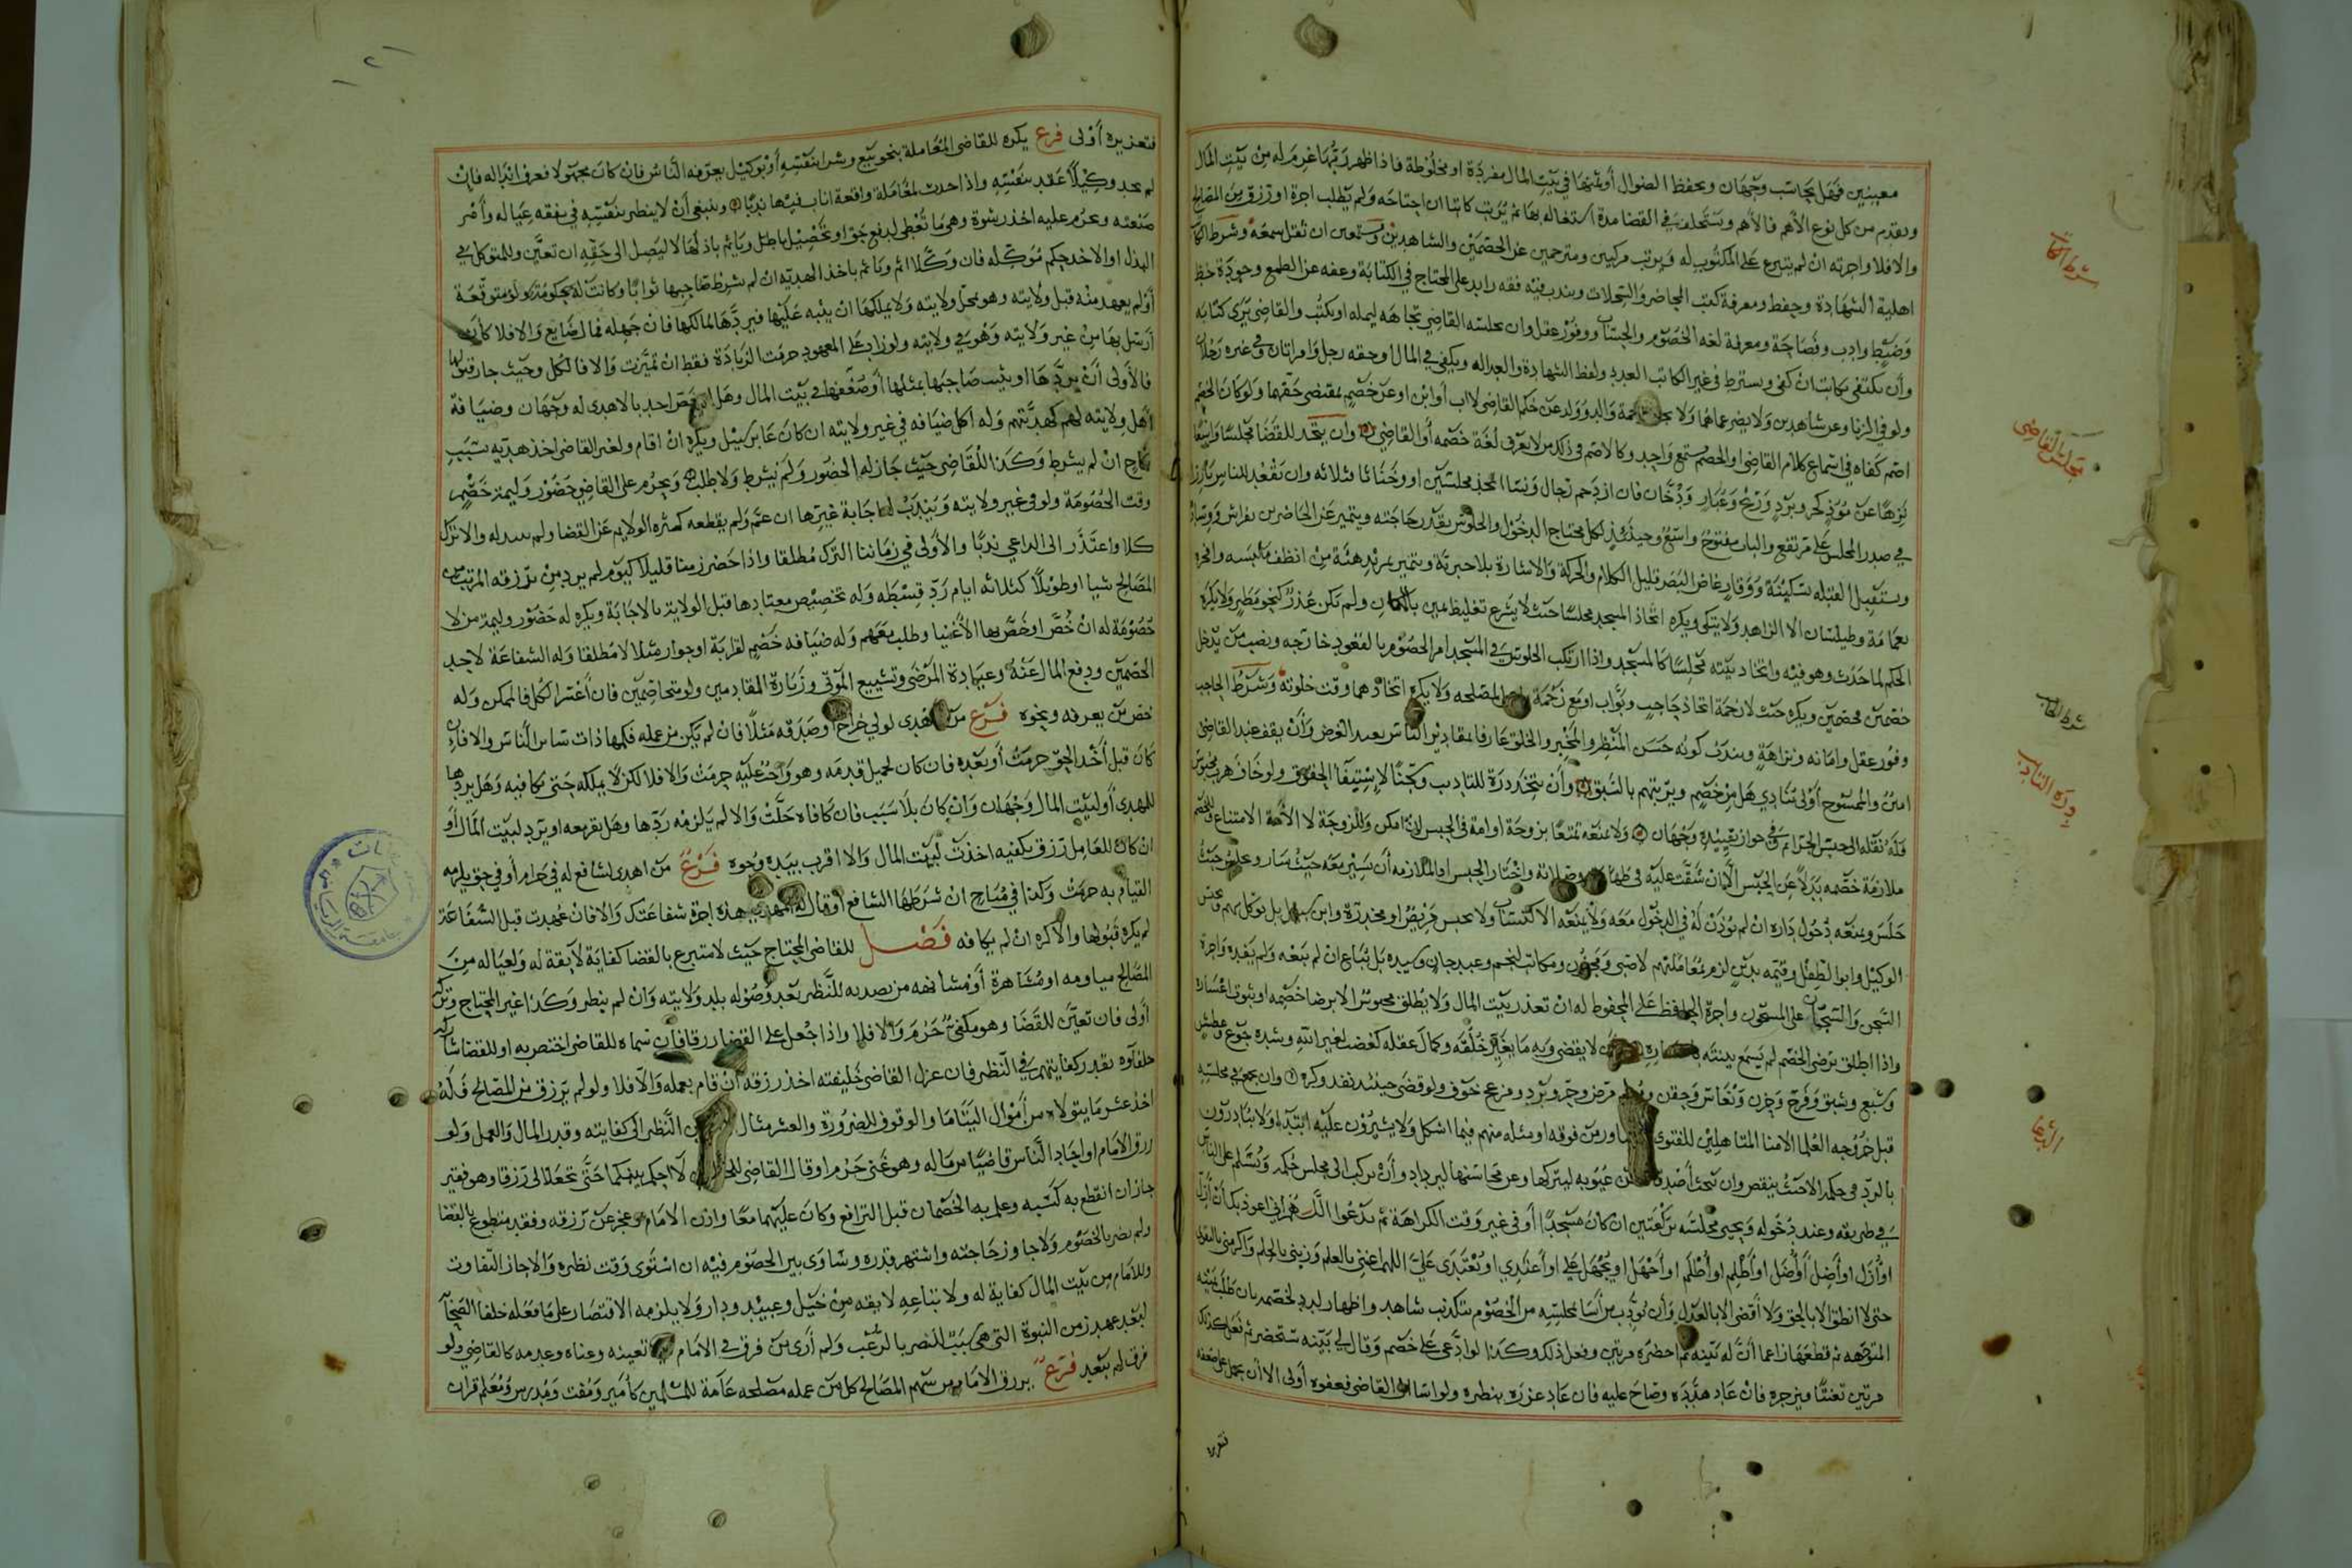 معينين فهل يحاسب وجهان ويحفظ الضوال أو ثمنها في بيت المال مفردة او مخلوطة فاذا ظهر ربها غرم له من بيت المال
ويقدم من كل نوع الأهم فالأهم ويستخلف في القضا مدة اشتغاله بها ثم يرتب كاتبا ان احتاجه ولم يطلب اجرة او رزق من المصالح
والافلا واجرته ان لم يتبرع على المكتوب له ويرتب مزكيين ومترجمين عن الخصمين والشاهدين ومسمعين ان ثقل سمعه وشرط
اهلية الشهادة وحفظ ومعرفة كتب المحاضر والسجلات ويندب فيه فقه زايد على المحتاج في الكتابة وعفه عن الطمع وجودة خط
وضبط وادب وفصاحة ومعرفة لغه الخصوم والحساب ووفور عقل وان يجلسه القاضي تجاهه ليمله او يكتب والقاضي يرى كتابه
وأن يكتفى بكاتب ان كفى ويشترط في غير الكاتب العدد ولفظ الشهادة والعداله ويكفي في المال او حقه رجل وامراتان وفي غيره رجلان
ولو في الزنا وعن شاهدين ولا يضر عماهما
اصم كفاه في اسماع كلام القاضي او الخصم مسمع واحد وكالاصم في ذلك من لا يعرف لغة خصمه أو القاضي وان يتخذ للقضا مجلسا واسعا
نزها عن مؤذ كحر وبرد وريح وغبار ودخان فان ازدحم رجال ونسا اتخذ مجلسين او وخناثا فثلاثه وان يقعد للناس بارزا
في صدر المجلس على مرتفع والباب مفتوح واسع وحينئذ لكل محتاج الدخول والجلوس بقدر حاجته ويتميز عن الحاضرين بفراش ووسادة
ويستقبل القبله بسكينة ووقار غاض البصر قليل الكلام والحركة والاشارة بلا جبرية ويتميز بمزيد هيئة من انظف ملابسه وافخر
بعمامة وطيلسان الا الزاهد ولا يتكى ويكره اتخاذ المسجد مجلسا حيث لا يشرع تغليظ يمين بالمكان ولم يكن عذر كنحو مطر ولا يكره
الحكم لما حدث وهو فيه واتخاد بيته مجلسا كالمسجد واذا ارتكب الجلوس في المسجد امر الخصوم بالقعود خارجه ونصب من يدخل
خصمين خصمين ويكره حيث لا زحمة اتخاذ حاجب وبواب او مع زحمة المصلحه ولا يكره اتخاذهما وقت خلوته وشرط الحاجب
وفور عقل وامانه ونزاهة ويندب كونه حسن المنظر والمخبر والخلق عارفا بمقادير الناس بعيد الغرض وأن يقف عند القاضي
امين والممسوح أولى ينادي هل من خصم ويرتبهم بالسبق وأن يتخذ درة للتاديب وسجنا لإستيفا الحقوق ولو خاف هرب محبوس
فله نقله الى حبس الجرائم وفي جواز تقييده وجهان ولا يمنعه تمتعا بزوجة او امة في الحبس ان امكن وللزوجة لا الأمة الامتناع
ملازمة خصمه بدلا عن الحبس الا ان شقت عليه في وصلاته واختار الحبس او الملازمه أن يسير معه حيث سار وعليه حيث
جلس ويمنعه دخول داره ان لم يؤذن له في الدخول معه ولا يمنعه الاكتساب ولا يحبس مريض او مخدرة وابن بل يوكل بهم
الوكيل وابوا الطفل وقيمه بدين لزم بمعاملتهم لا صبي ومجنون ومكاتب لنجم وعبد جان وسيده بل يباع ان لم يبعه ولم يفده واجرة
السجن والسجان على المسجون واجرة الحافظ على المحفوظ له ان تعذر بيت المال ولا يطلق محبوس الا برضا خصمه او بثبوت اعساره
واذا اطلق برضى الخصم لم يسمع بينته لا يقضي وبه ما يغير خلقه وكمال عقله كغضب لغير الله وشدة جوع وعطش
وشبع وشبق وفرح وحزن ونعاس وحقن مرض وحر وبرد ومزعج خوف ولو قضى حينئذ نفذ وكره وان يجمع في مجلسه
قبل خروجه العلما الامنا المتاهلين للفتوى ويشاور من فوقه او مثله منهم فيما اشكل ولا يشيرون عليه ابتداء ولا يبادرون
بالرد في حكمه الا حيث ينقض وان يبحث أصدقاه عن عيوبه ليتركها وعن محاسنها ليزداد وأن يركب الى مجلس حكمه ويسلم على الناس
في طريقه وعند دخوله ويحيي مجلسه بركعتين ان كان مسجدا أو في غير وقت الكراهة ثم يدعوا اللهم اني اعوذ بك أن أزل
او أزل او أضل أو أضل او أظلم او أظلم او أجهل او يجهل علي او أعتدي او يعتدى علي اللهم اغنني بالعلم وزيني بالحلم واكرمني بالتقوى
حتى لا انطق الا بالحق ولا أقضي الا بالعدل وأن يؤدب من أسا بمجلسه من الخصوم بتكذيب شاهد واظهار لدد لخصم بان طلب يمينه
المتوجهه ثم قطعها زاعما أن له بينه ثم احضره مرتين وفعل ذلك وكذا لو ادعى على خصم وقال لي بينه ستحضر ثم فعل كذلك
مرتين تعنتا فيزجره فان عاد هدده وصاح عليه فان عاد عزره بنظره ولو اسا الى القاضي فعفوه أولى الا أن يحمل على ضعفه
فتعزيره أولى فرع يكره للقاضي المعاملة بنحو بيع وشرا بنفسه أو بوكيل يعرفه الناس فان كان مجهولا فعرف ابداله فان
لم يجد وكيلا عقد بنفسه واذا حدث لمعامله واقعة اناب فيها ندبا وينبغي أن لا ينظر بنفسه في نفقه عياله وأمر
صنعته ويحرم عليه اخذ رشوة وهي ما تعطى لدفع حق او تحصيل باطل وياثم باذلها لا ليصل الى حقه ان تعين وللمتوكل في
البذل او الاخذ حكم موكله فان وكلا اثم وياثم باخذ الهديه ان لم يشرط صاحبها ثوابا وكانت له حكومة ولو متوقعة
أو لم يعهد منه قبل ولايته وهو بمحل ولايته ولا يملكها ان ينبه عليها فيردها لمالكها فان جهله فمال ضايع والافلا كأن
أرسل بها من غير ولايته وهو في ولايته ولو زاد على المعهود حرمت الزيادة فقط ان تميزت والا فالكل وحيث جاز قبولها
فالأولى أن يردها او يثيب صاحبها بمثلها أو ضعفها في بيت المال وهل احد بالاهدى له وجهان وضيافة
اهل ولايته لهم كهديتهم وله اكل ضيافه في غير ولايته ان كان عابر سبيل ويكره ان اقام ولغير القاضي اخذ هديه بسبب
نكاح ان لم يشرط وكذا للقاضي حيث جاز له الحضور ولم يشرط ولا طلب ويحرم على القاضي حضور وليمة خصم
وقت الخصومة ولو في غير ولايته ويندب له اجابة غيرها ان عمم ولم يقطعه كثره الولايم عن القضا والا ترك
كلا واعتذر الى الداعي ندبا والأولى في زماننا الترك مطلقا واذا حضر زمنا قليلا كيوم لم يرد من رزقه المرتب من
المصالح شيا او طويلا كثلاثه ايام رد قسطه وله تخصيص معتادها قبل الولاية بالاجابة ويكره له حضور وليمة من لا
خصومة له ان خص او خص بها الأغنيا وطلب معهم وله ضيافه خصم لقرابة او جوار مثلا لا مطلقا وله الشفاعة لاحد
الخصمين ودفع المال عنه وعيادة المرضى وتشييع الموتى وزيارة القادمين ولو متخاصمين فان أعسر الكل فالممكن وله
خص من يعرفه ونحوه فرع من اهدى لولي خراج أو صدقه مثلا فان لم يكن من عمله فكمهاداة ساير الناس والا فان
كان قبل أخذ الحق حرمت أو بعده فان كان لجميل قدمه وهو واجب عليه حرمت والافلا لكن لا يملكه حتى يكافيه وهل يردها
للمهدي أو لبيت المال وجهان وان كان بلا سبب فان كافاه حلت والا لم يلزمه ردها وهل يقر معه او يرد لبيت المال أو
ان كان للعامل رزق يكفيه اخذت لبيت المال والا اقرت بيده وجوه فرع من اهدى لشافع له في حرام أو في حق يلزمه
القيام به حرمت وكذا في مباح ان شرطها الشافع أو قال له المهدي هذه اجرة شفاعتك والا فان عهدت قبل الشفاعة
لم يكره قبولها والا كره ان لم يكافه فصل للقاضي المحتاج حيث لا متبرع بالقضا كفاية لايقة له ولعياله من
المصالح مياومه او مشاهرة أو مسانهه من تصديه للنظر بعد وصوله بلد ولايته وان لم ينظر وكذا غير المحتاج وتركه
أولى فان تعين للقضا وهو مكفي حرم والافلا واذا جعل على القضا رزقا فان سماه للقاضي اختص به او للقضا شاركه
خلفاوه بقدر كفايتهم في النظر فان عزل القاضي خليفته اخذ رزقه ان قام بعمله والافلا ولو لم يرزق من المصالح فله
اخذ عشر ما يتولاه من أموال اليتاما والوقوف للضرورة والعشر مثال النظر الى كفايته وقدر المال والعمل ولو
رزق الامام او احاد الناس قاضيا من ماله وهو غني حرم او قال القاضي للخصمين لا احكم بينكما حتى تجعلا لي رزقا وهو فقير
جاز ان انقطع به كسبه وعلم به الخصمان قبل الترافع وكان عليهما معا واذن الامام وعجز عن رزقه وفقد متطوع بالقضا
ولم يضر بالخصوم ولا جاوز حاجته واشتهر قدره وساوى بين الخصوم فيه ان استوى وقت نظره والا جاز التفاوت
وللامام من بيت المال كفاية له ولاتباعه لايقه من خيل وعبيد ودار ولا يلزمه الاقتصار على ما فعله خلفا الصحابة
لبعد عهد زمن النبوة التي هي سبب النصر بالرعب ولم أرى من فرق في الامام بين تعينه وغناه وعدمه كالقاضي ولو
فرق لم يبعد فرع يرزق الامام من سهم المصالح كل من عمله مصلحه عامة للمسلمين كأمير ومفت ومدرس ومعلم قران
شرط الكاتب
مجلس القاضي
شرط الحاجب
درة التاديب
الدعا
تعزير
١٢١